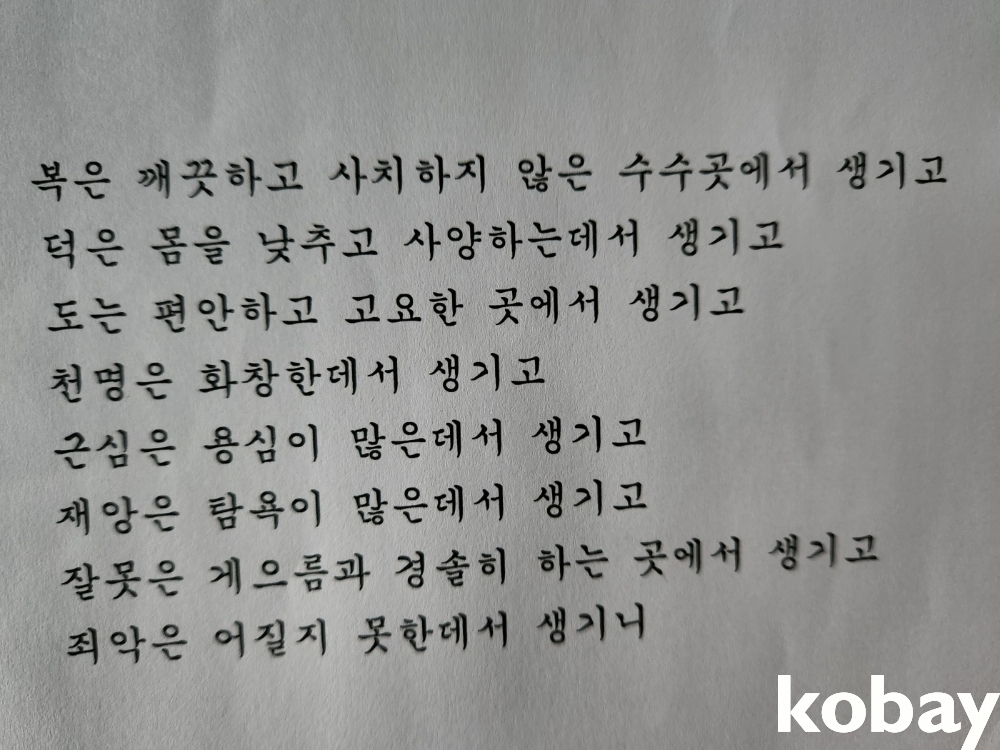 복은 깨끗하고 사치하지 않은 수수곳에서 생기고
덕은 몸을 낮추고 사양하는데서 생기고
도는 편안하고 고요한 곳에서 생기고
천명은 화창한데서 생기고
근심은 용심이 많은데서 생기고
재앙은 탐욕이 많은데서 생기고
잘못은 게으름과 경솔히 하는 곳에서 생기고
죄악은 어질지 못한데서 생기니
kobay